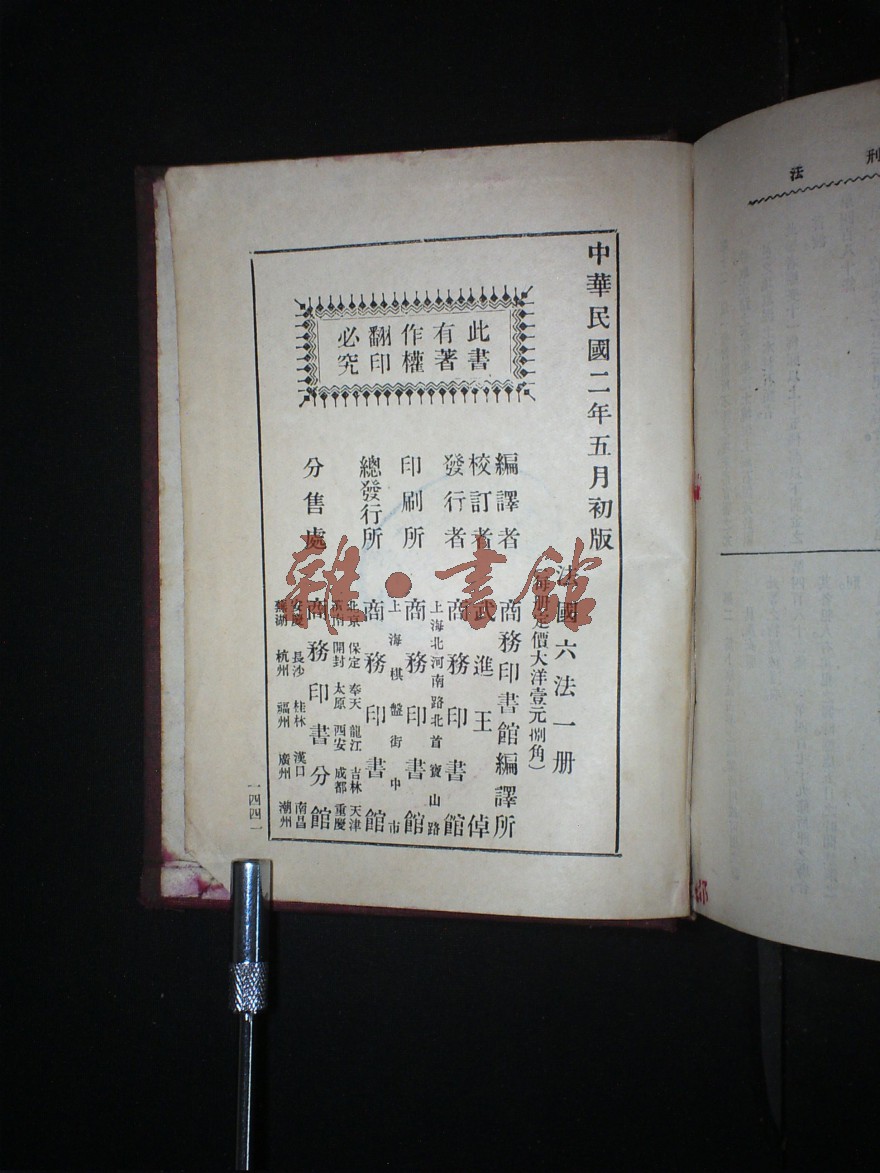 中華民國二年五月初版
法國六法一册
(每册定價大洋壹元捌角)
編譯者 商務印書館編譯所
校訂者 武進王倬
發行者 商務印書館
上海北河南路北首寶山路
印刷所 商務印書館
上海棋盤街中市
總發行所 商務印書館
北京 保定 奉天 龍江 吉林 天津
濟南 開封 太原 西安 成都 重慶
分售處 商務印書分館
安慶 長沙 桂林 漢口 南昌
蕪湖 杭州 福州 廣州 潮州
此書
有著
作權
翻印
必究
一四四一
刑法
雜·書館